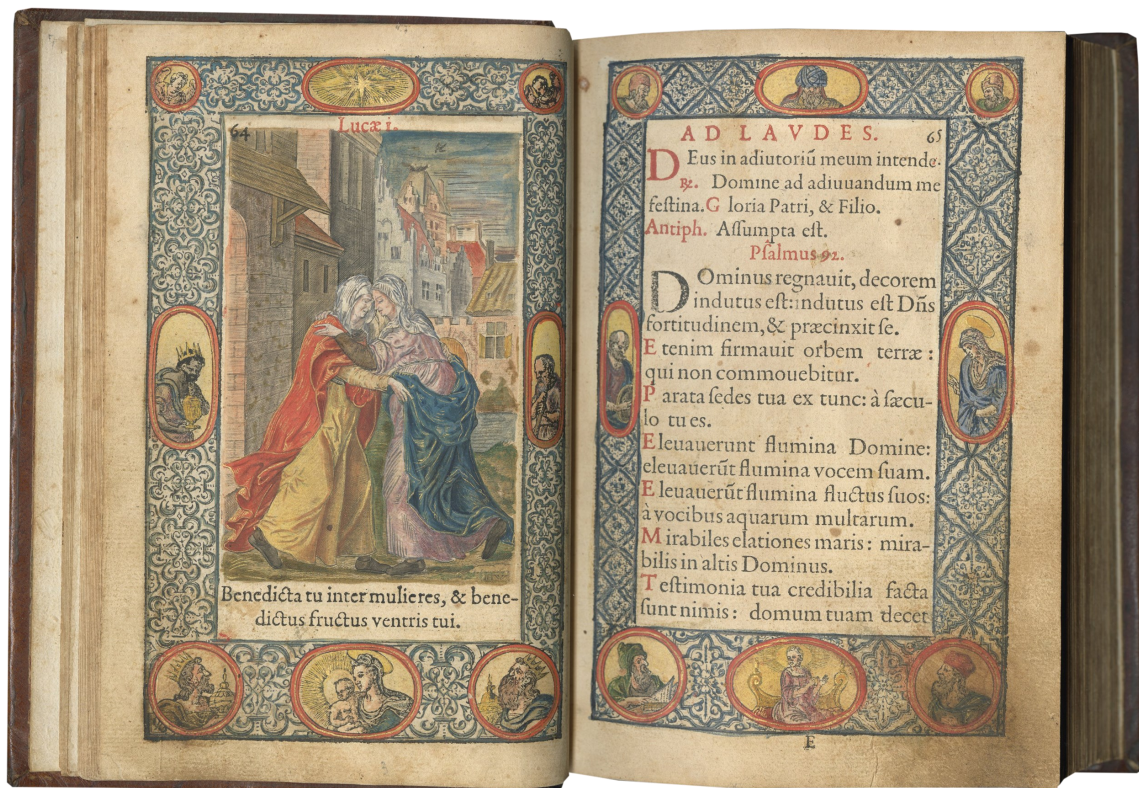 64
Lucæ i.
Benedicta tu inter mulieres, & bene-
dictus fructus ventris tui.
AD LAVDES. 65
DEus in adiutoriū meum intende.
℞. Domine ad adiuuandum me
festina. Gloria Patri, & Filio.
Antiph. Assumpta est.
Psalmus 92.
DOminus regnauit, decorem
indutus est: indutus est Dñs
fortitudinem, & præcinxit se.
Etenim firmauit orbem terræ :
qui non commouebitur.
Parata sedes tua ex tunc: à sæcu-
lo tu es.
Eleuauerunt flumina Domine:
eleuauerūt flumina vocem suam.
Eleuauerūt flumina fluctus suos:
à vocibus aquarum multarum.
Mirabiles elationes maris : mira-
bilis in altis Dominus.
Testimonia tua credibilia facta
sunt nimis : domum tuam decet
E